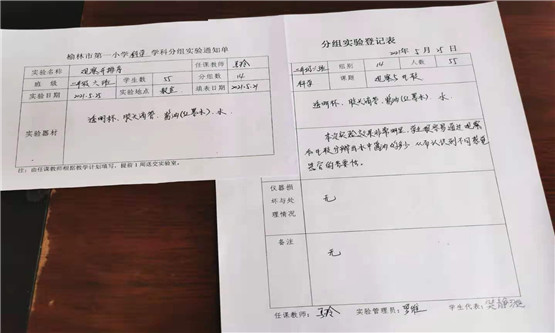 榆林市第一小学科学学科分组实验通知单
实验名称 观察与推荐 任课教师 马玲
班 级 二年级六班 学生数 55 分组数 14
实验日期 2021.5.25 实验地点 教室 填表日期 2021.5.21
实验器材 透明杯、吸管滴管、酱油(红墨水)、水
注：由任课教师根据教学计划填写，提前1周送交实验室。
分组实验登记表
2021年 5月 25日
二年级六班 组别 14 人数 55
科学 课题 观察与比较
透明杯、滴管、酱油(红墨水)、水
本次实验效果非常明显，学生很容易通过观察
和比较分辨出水中酱油的多少，从而认识到
仪器损
坏与处
理情况
无
备注
无
任课教师：马玲 实验管理员：罗雅 学生代表：